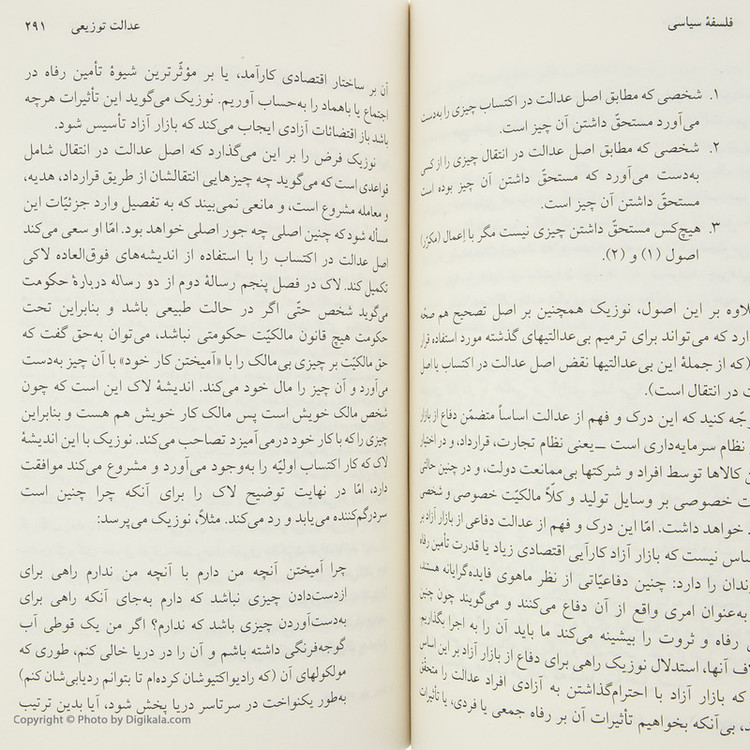 فلسفهٔ سیاسی
۱. شخصی که مطابق اصل عدالت در اکتساب چیزی را به‌دست
می‌آورد مستحقّ داشتن آن چیز است.
۲. شخصی که مطابق اصل عدالت در انتقال چیزی را از کسی
به‌دست می‌آورد که مستحقّ داشتن آن چیز بوده است
مستحقّ داشتن آن چیز است.
۳. هیچ‌کس مستحقّ داشتن چیزی نیست مگر با اِعمال (مکرّر)
اصول (۱) و (۲).
بر این اصول، نوزیک همچنین بر اصل تصحیح هم
که می‌تواند برای ترمیم بی‌عدالتیهای گذشته مورد استفاده قرار
(که از جملهٔ این بی‌عدالتیها نقض اصل عدالت در اکتساب یا اصل
در انتقال است).
کنید که این درک و فهم از عدالت اساساً متضمّن دفاع از بازار
نظام سرمایه‌داری است ــ یعنی نظام تجارت، قرارداد، و در اختیار
کالاها توسط افراد و شرکتها بی‌ممانعت دولت، و در چنین حالتی
خصوصی بر وسایل تولید و کلّاً مالکیّت خصوصی و شخصی
خواهد داشت. امّا این درک و فهم از عدالت دفاعی از بازار آزاد بر
نیست که بازار آزاد کارآیی اقتصادی زیاد یا قدرت تأمین رفاه
را دارد: چنین دفاعیّاتی از نظر ماهوی فایده‌گرایانه هستند،
به‌عنوان امری واقع از آن دفاع می‌کنند و می‌گویند چون چنین
رفاه و ثروت را بیشینه می‌کند ما باید آن را به اجرا بگذاریم
آنها، استدلال نوزیک راهی برای دفاع از بازار آزاد بر این اساس
که بازار آزاد با احترام‌گذاشتن به آزادی افراد عدالت را متحقق
بی‌آنکه بخواهیم تأثیرات آن بر رفاه جمعی یا فردی، یا تأثیرات
عدالت توزیعی ۲۹۱
آن بر ساختار اقتصادی کارآمد، یا بر مؤثّرترین شیوهٔ تأمین رفاه در
اجتماع یا باهماد را به‌حساب آوریم. نوزیک می‌گوید این تأثیرات هرچه
باشد باز اقتضائات آزادی ایجاب می‌کند که بازار آزاد تأسیس شود.
نوزیک فرض را بر این می‌گذارد که اصل عدالت در انتقال شامل
قواعدی است که می‌گوید چه چیزهایی انتقالشان از طریق قرارداد، هدیه،
و معامله مشروع است، و مانعی نمی‌بیند که به تفصیل وارد جزئیّات این
مسأله شود که چنین اصلی چه جور اصلی خواهد بود. امّا او سعی می‌کند
اصل عدالت در اکتساب را با استفاده از اندیشه‌های فوق‌العاده لاکی
تکمیل کند. لاک در فصل پنجم رسالهٔ دوم از دو رساله دربارهٔ حکومت
می‌گوید شخص حتّی اگر در حالت طبیعی باشد و بنابراین تحت
حکومت هیچ قانون مالکیّت حکومتی نباشد، می‌توان به‌حق گفت که
حق مالکیّت بر چیزی بی‌مالک را با «آمیختن کار خود» با آن چیز به‌دست
می‌آورد و آن چیز را مال خود می‌کند. اندیشهٔ لاک این است که چون
شخص مالک خویش است پس مالک کار خویش هم هست و بنابراین
چیزی را که با کار خود درمی‌آمیزد تصاحب می‌کند. نوزیک با این اندیشهٔ
لاک که کار اکتساب اولیّه را به‌وجود می‌آورد و مشروع می‌کند موافقت
دارد، امّا در نهایت توضیح لاک را برای آنکه چرا چنین است
سردرگم‌کننده می‌یابد و رد می‌کند. مثلاً، نوزیک می‌پرسد:
چرا آمیختن آنچه من دارم با آنچه من ندارم راهی برای
ازدست‌دادن چیزی نباشد که دارم به‌جای آنکه راهی برای
به‌دست‌آوردن چیزی باشد که ندارم؟ اگر من یک قوطی آب
گوجه‌فرنگی داشته باشم و آن را در دریا خالی کنم، طوری که
مولکولهای آن (که رادیواکتیوشان کرده‌ام تا بتوانم ردیابی‌شان کنم)
به‌طور یکنواخت در سرتاسر دریا پخش شود، آیا بدین ترتیب
Copyright © Photo by Digikala.com